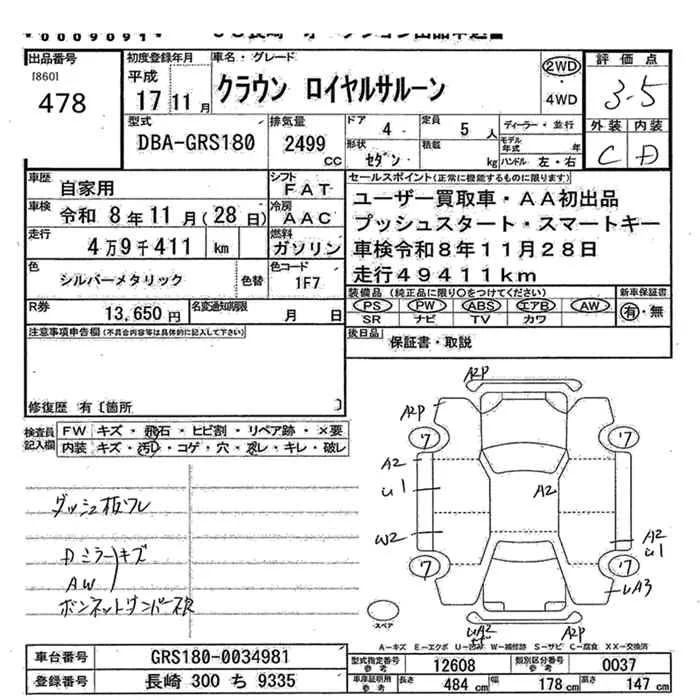 出品番号
[860]
478
初度登録年月
平成
17 11月
車名・グレード
クラウン ロイヤルサルーン
2WD
・
4WD
評価点
3.5
外装 内装
C D
型式
DBA-GRS180
排気量
2499
CC
ドア
4
定員
5人
形状
セダン
積載
kg
ディーラー・並行
モデル年式 年
ハンドル 左・右
車歴
自家用
シフト
FAT
車検
令和 8年11月(28日)
冷房
AAC
走行
4万9千411 km
燃料
ガソリン
色
シルバーメタリック
色替
色コード
1F7
R券
13,650円
名変通知期限
月 日
セールスポイント(正常に機能するものに限ります)
ユーザー買取車・AA初出品
プッシュスタート・スマートキー
車検令和8年11月28日
走行49411km
装備品 (純正品に限り○をつけてください)
PS PW ABS エアB AW
SR ナビ TV カワ
新車保証書
有・無
後日品
保証書・取説
注意事項申告欄(不具合内容等は具体的に記入して下さい)
修復歴 有〔箇所 〕
検査員
記入欄
FW キズ・飛石・ヒビ割・リペア跡・×要
内装 キズ・汚D・コゲ・穴・スレ・キレ・破レ
Dミラー キズ
AW
A2P
A2P
ワ
ワ
A2
U1
A2
W2
A2
U1
ワ
ワ
UA3
UA2
A2P
スペア
A-キズ E-エクボ W-補修跡 S-サビ C-腐食 XX-交換済
車台番号
GRS180-0034981
登録番号
長崎 300 ち 9335
型式指定番号
参考
12608
類別区分番号
参考
0037
車庫証明用
参考
長さ 484 cm
幅 178 cm
高さ 147 cm